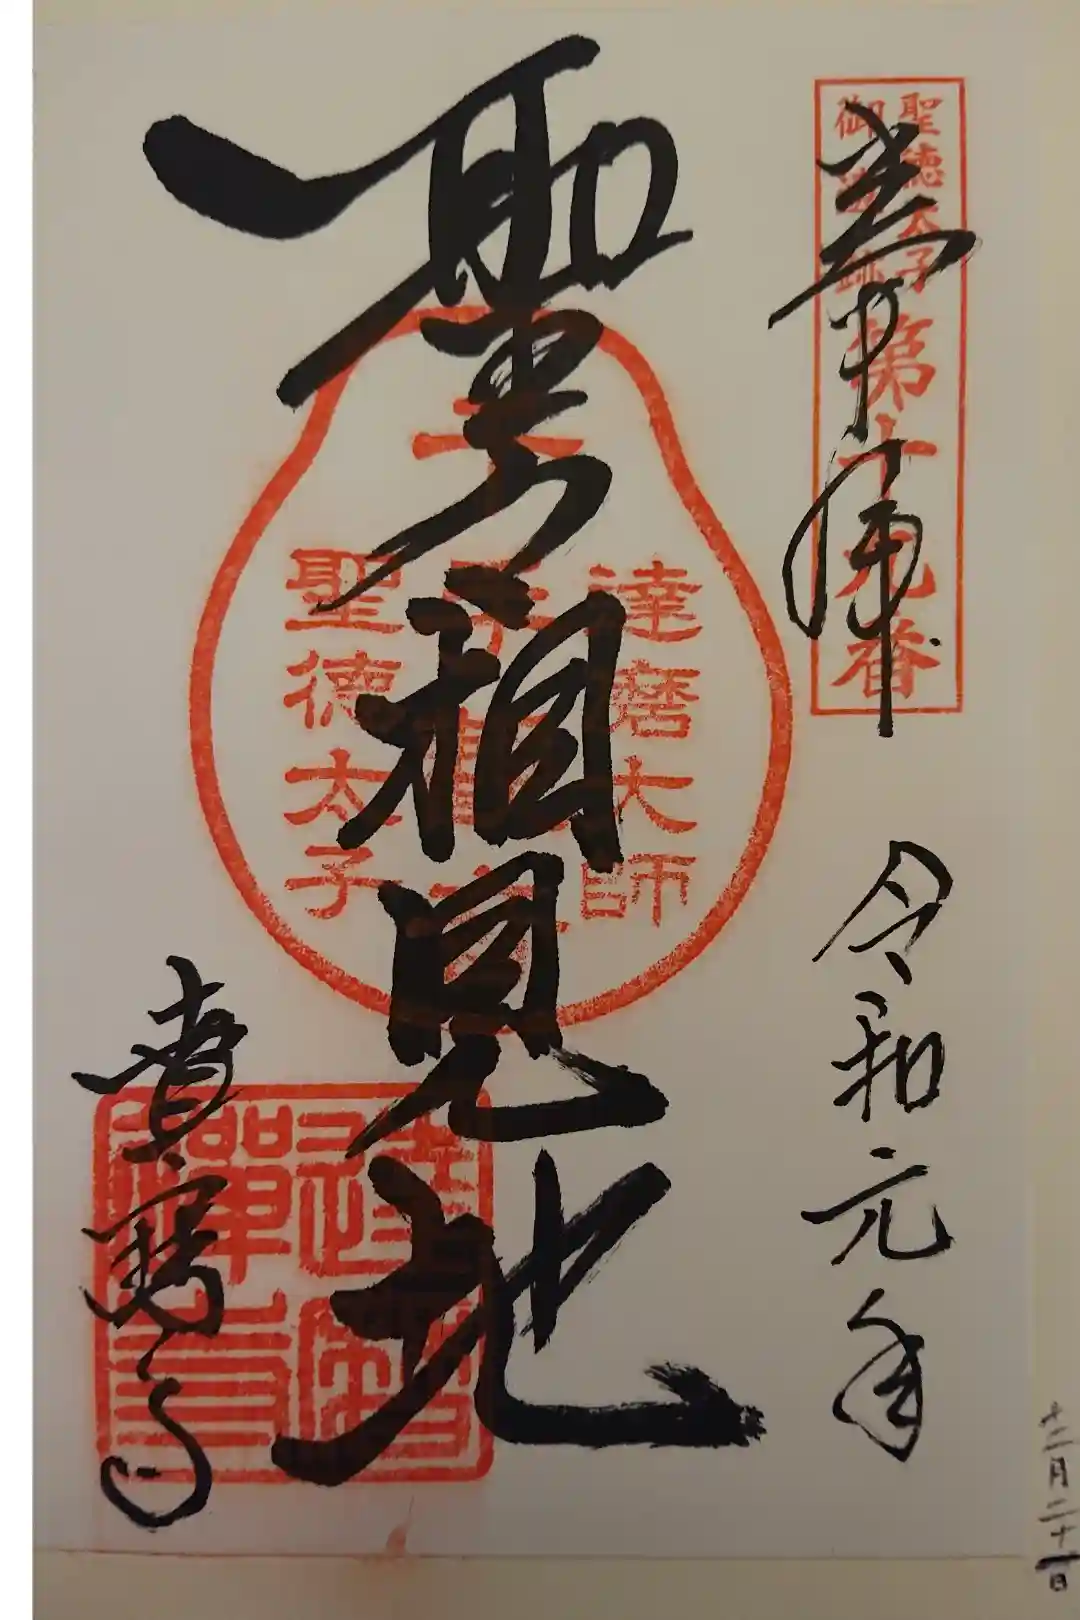 聖徳太子
御遺跡
第十九番
奉拝
令和元年
十二月二十一日
聖々相見地
達磨大師
千手観音
聖徳太子
達磨寺